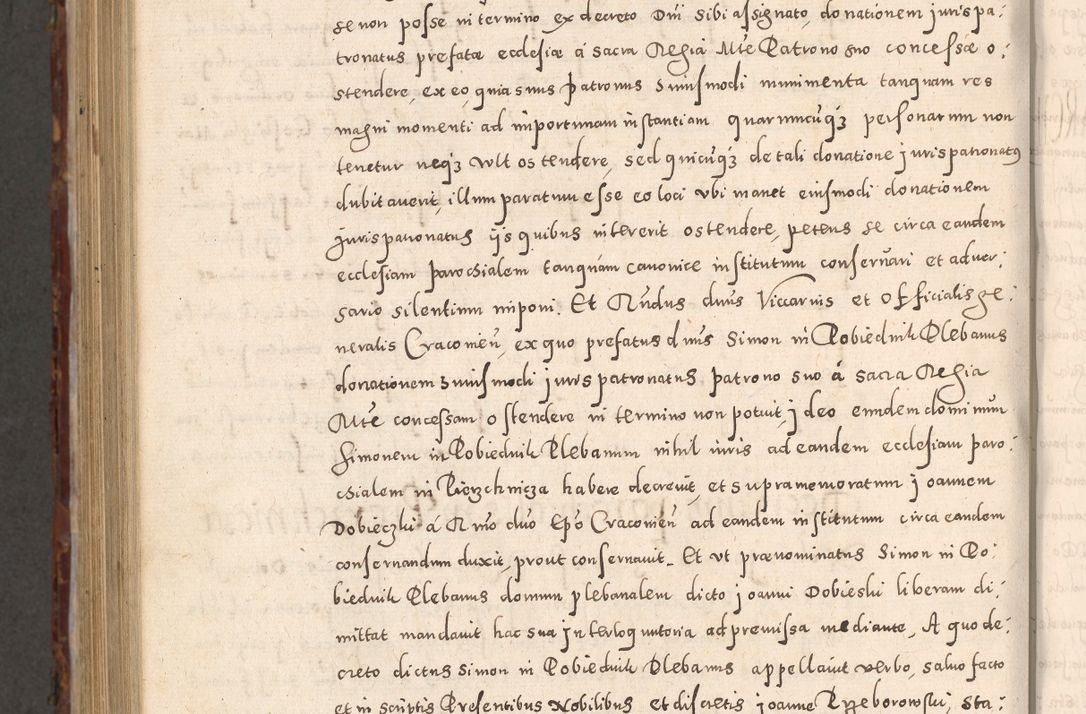 se non posse in termino ex decreto Dni sibi assignato, donationem juris pa:
tronatus prefatæ ecclesiæ á sacra Regia Mte Patrono suo concessæ o:
stendere, ex eo, quia suus patronus huiusmodi munimenta tanquam res
magni momenti ad importunam instantiam quarumcunqz personarum non
tenetur neqz vult ostendere, sed quicunqz de tali donatione juris patronatus
dubitaverit, illum paratum esse eo loci ubi manet eiusmodi donationem
juris patronatus ijs quibus intererit ostendere, petens se circa eandem
ecclesiam parochialem tanquam canonice institutum conservari et adver:
sario silentium imponi. Et Rndus dnus Viccarius et Officialis ge:
neralis Cracovien, ex quo prefatus dnus Simon in Pobiednik Plebanus
donationem huiusmodi juris patronatus patrono suo á sacra Regia
Mte concessam ostendere in termino non potuit, jdeo eundem dominum
Simonem in Pobiednik Plebanum nihil iuris ad eandem ecclesiam paro:
chialem in Pierzchnicza habere decrevit, et supramemoratum joannem
Dobieczki á Rmo dno Epo Cracovien ad eandem institutum circa eandem
conservandum duxit, prout conservavit. Et ut prænominatus Simon in Po:
biednik Plebanus domum plebanalem dicto joanni Dobieski liberam di:
mittat mandavit hac sua jnterloquutoria ad premissa mediante, A quo de:
creto dictus Simon in Pobiednik Plebanus appellavit verbo, salvo facto
et in scriptis Presentibus Nobilibus et discretis joanne Przeborowski, Sta: